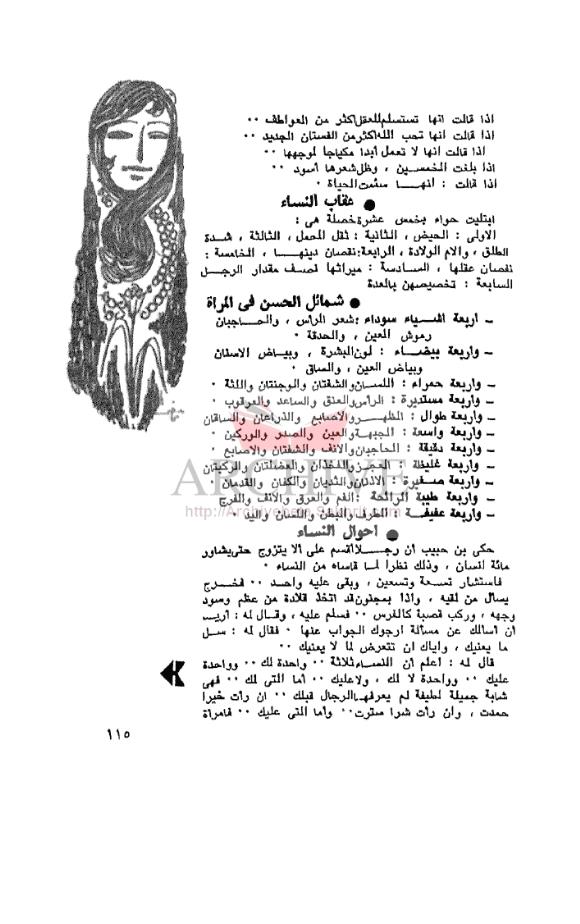 اذا قالت انها تستسلم للعقل اكثر من العواطف ··
اذا قالت انها تحب الله اكثر من الفستان الجديد ··
اذا قالت انها لا تعمل أبدا مكياجا لوجهها ··
اذا بلغت الخمسين ، وظل شعرها أسود ··
اذا قالت : انها سئمت الحياة ·
● عقاب النساء
ابتليت حواء بخمس عشرة خصلة هى :
الاولى : الحيض ، الثانية : ثقل الحمل ، الثالثة ، شدة
الطلق ، والام الولادة ، الرابعة: نقصان دينها ، الخامسة :
نقصان عقلها ، السادسة : ميراثها نصف مقدار الرجل
السابعة : تخصيصهن بالعدة
● شمائل الحسن فى المرأة
– اربعة اشياء سوداء : شعر الرأس ، والحاجبان
رموش العين ، والحدقة ·
– واربعة بيضاء : لون البشرة ، وبياض الاسنان
وبياض العين ، والساق ·
– واربعة حمراء : اللسان والشفتان والوجنتان واللثة ·
– واربعة مستديرة : الرأس والعنق والساعد والعرقوب ·
– واربعة طوال : الظهر والاصابع والذراعان والساقان
– واربعة واسعة : الجبهة والعين والصدر والوركين ·
– واربعة دقيقة : الحاجبان والانف والشفتان والاصابع ·
– واربعة غليظة : العجز والفخذان والعضلتان والركبتان
– واربعة صغيرة : الاذنان والثديان والكفان والقدمان ·
– واربعة طيبة الرائحة : الفم والعرق والانف والفرج
– واربعة عفيفة : الطرف والبطن واللسان واليد ·
ARCHIVE
http://Archivebeta.Sakhrit.com
● احوال النساء
حكى بن حبيب ان رجلا اقسم على الا يتزوج حتى يشاور
مائة انسان ، وذلك نظرا لما قاساه من النساء ·
فاستشار تسعة وتسعين ، وبقى عليه واحد ·· فخرج
يسأل من لقيه ، واذا بمجنون قد اتخذ قلادة من عظم وسود
وجهه ، وركب قصبة كالفرس ·· فسلم عليه ، وقال له : أريد
أن أسالك عن مسألة ارجوك الجواب عنها · فقال له : سل
ما يعنيك ، واياك ان تتعرض لما لا يعنيك ··
قال له : اعلم أن النساء ثلاثة ·· واحدة لك ·· وواحدة
عليك ·· وواحدة لا لك ، ولا عليك ·· أما التى لك ·· فهى
شابة جميلة لطيفة لم يعرفها الرجال قبلك ·· ان رأت خيرا
حمدت ، وان رأت شرا سترت ·· وأما التى عليك ·· فامرأة
١١٥